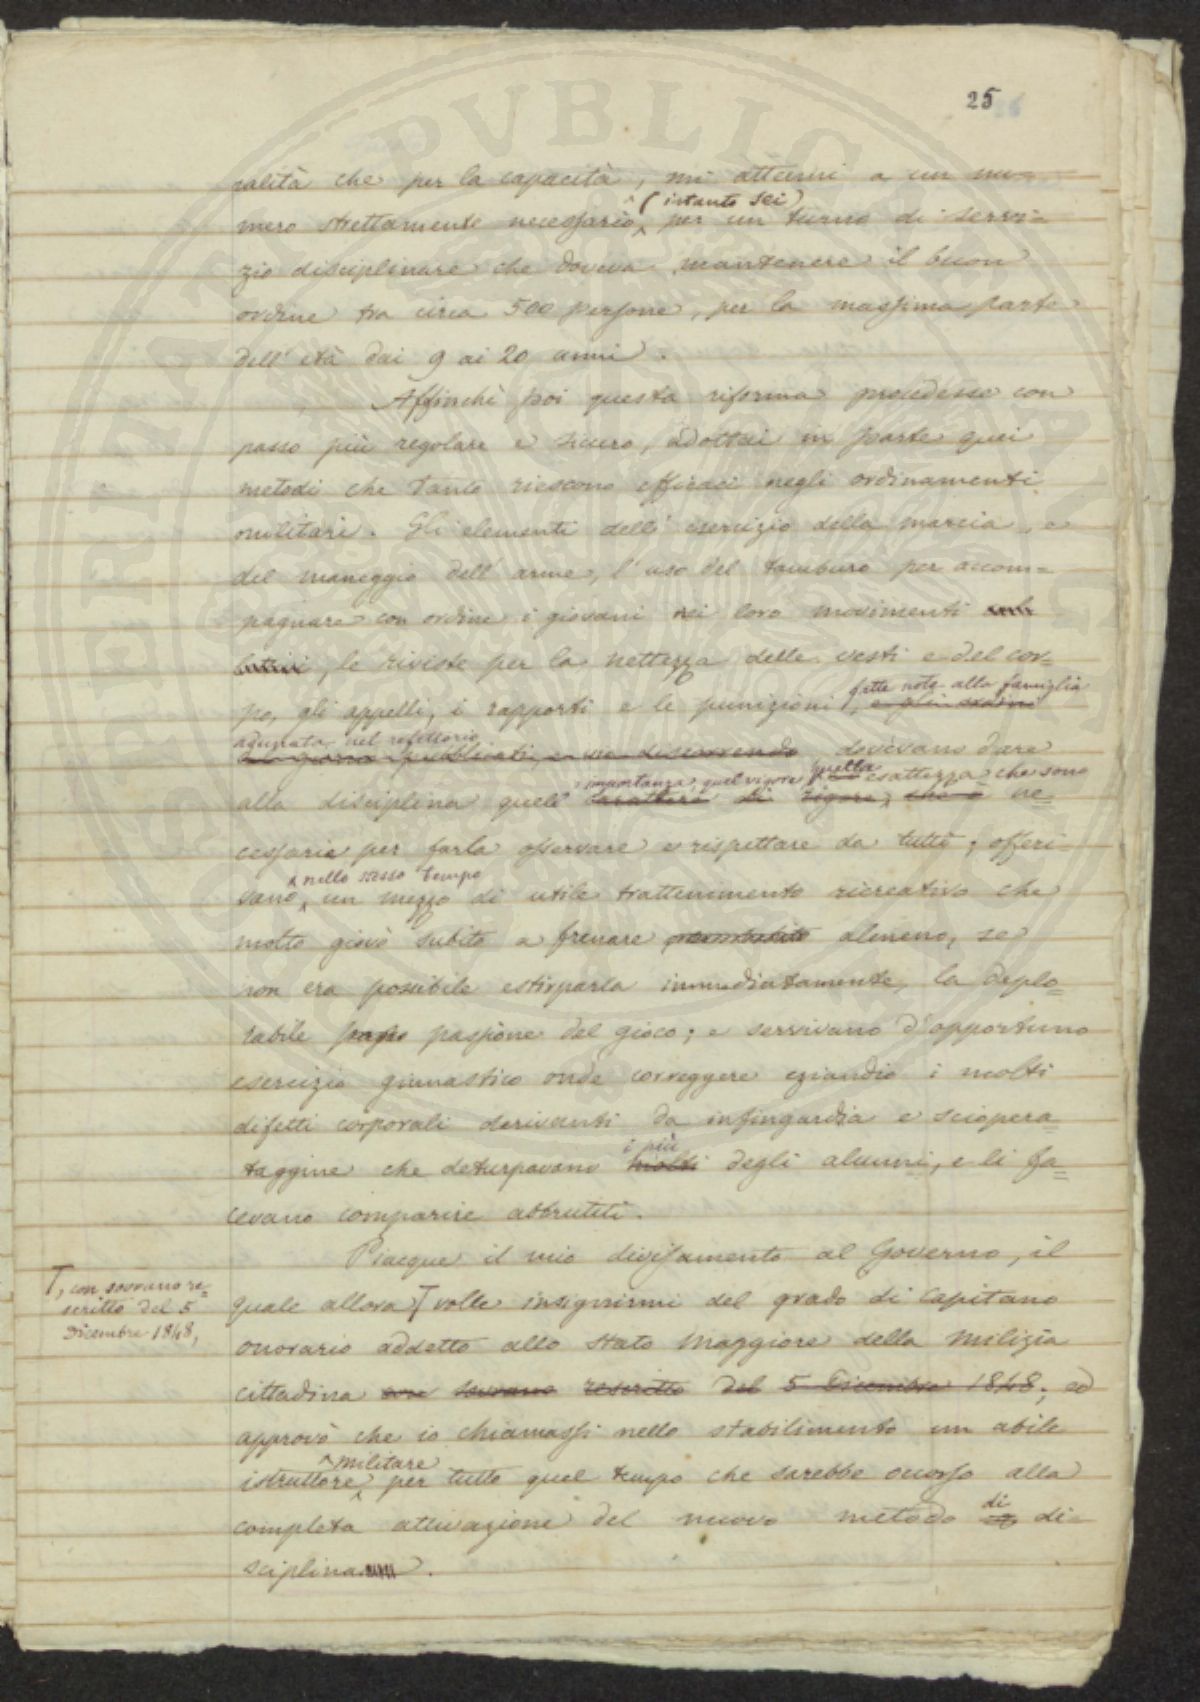 25
ralità che per la capacità, mi attenni a un nu=
(istanto sei)
mero strettamente necessario per un turno di servi=
zio disciplinare che doveva mantenere il buon
ordine tra circa 500 persone, per la massima parte
dell'età dai 9 ai 20 anni.
Affinchè poi questa riforma procedesse con
passo più regolare e sicuro, adottai in parte quei
metodi che tanto riescono efficaci negli ordinamenti
militari. Gli elementi dell'esercizio della marcia, e
del maneggio dell'arme, l'uso del tamburo per accom=
pagnare con ordine i giovani nei loro movimenti
, le riviste per la nettezza delle vesti e del cor=
fatte note alla famiglia
po, gli appelli, i rapporti e le punizioni, e gli ordini
adunata nel refettorio,
pubblicati, dovevano dare
importanza, quel vigore, quella esattezza che sono
alla disciplina quel carattere di rigore, che è ne=
cessarie per farla osservare e rispettare da tutti; offeri=
nello stesso tempo
vano, un mezzo di utile trattenimento ricreativo che
molto giovò subito a frenare almeno, se
non era possibile estirparla immediatamente, la deplo=
rabile passione del gioco; e servivano d'opportuno
esercizio ginnastico onde correggere eziandio i molti
difetti corporali derivanti da infingardia e sciopera=
i più
taggine che deturpavano molti degli alunni, e li fa=
cevano comparire abbrutiti.
Piacque il mio divisamento al Governo, il
T, con sovrano re=
scritto del 5
Dicembre 1848,
quale allora T volle insignirmi del grado di Capitano
onorario addetto allo Stato Maggiore della Milizia
cittadina con sovrano rescritto del 5 Dicembre 1848; ed
approvò che io chiamassi nello stabilimento un abile
militare
istruttore, per tutto quel tempo che sarebbe occorso alla
completa attivazione del nuovo metodo di di=
sciplina.